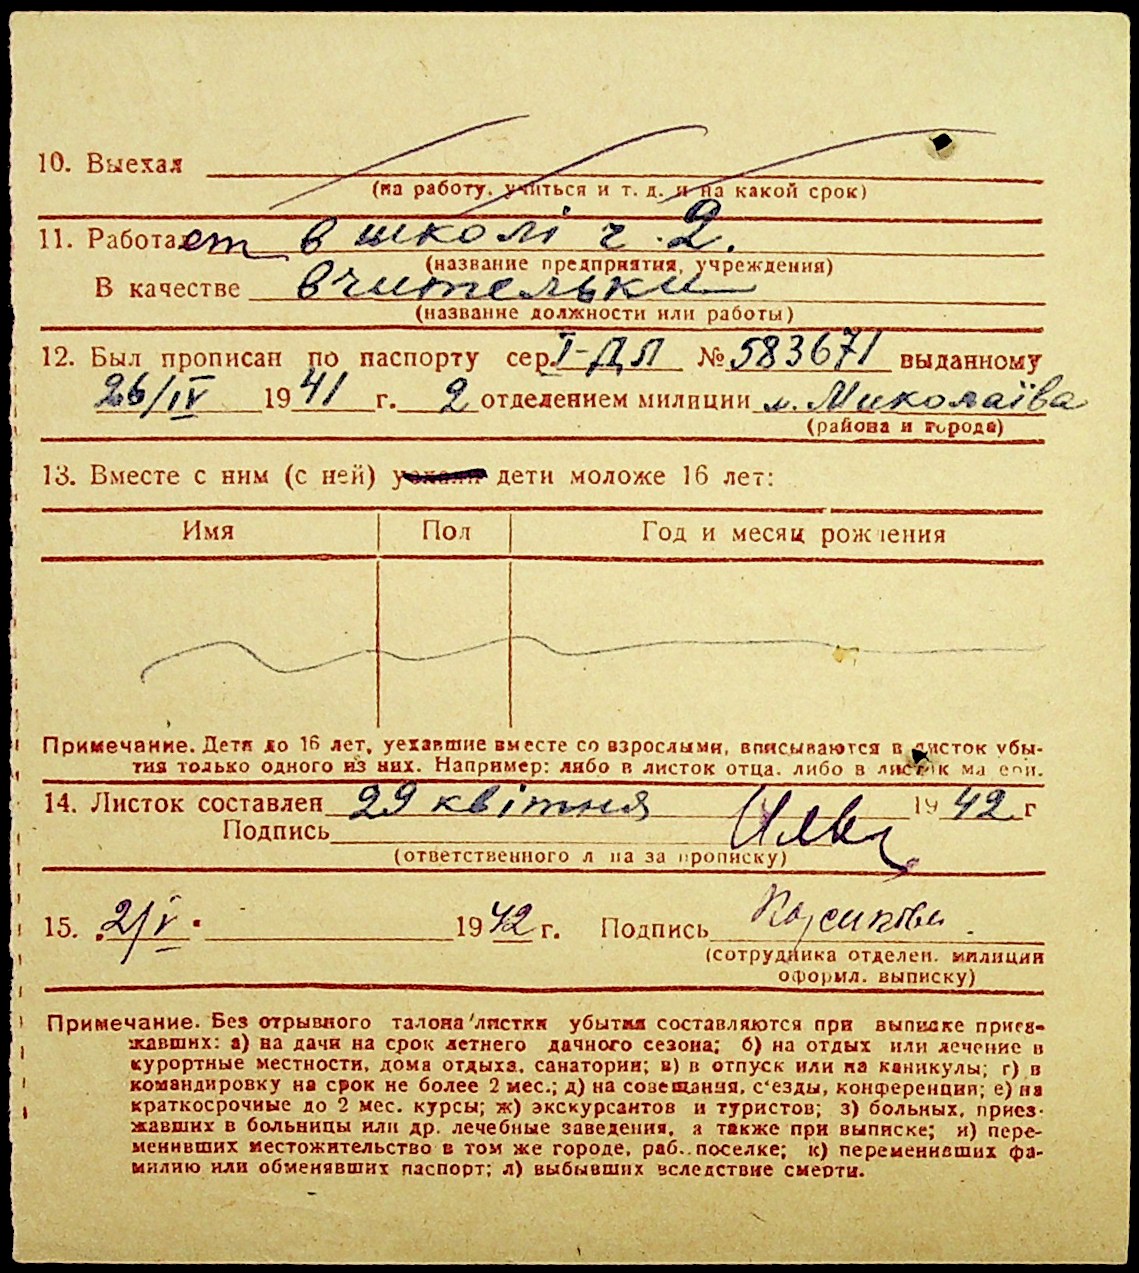 10. Выехал
(на работу, учиться и т. д. и на какой срок)
11. Работает в школі ч. 2.
(название предприятия, учреждения)
В качестве вчительки
(название должности или работы)
12. Был прописан по паспорту сер. І-ДЛ № 583671 выданному
26/IV 1941 г. 2 отделением милиции м. Миколаїва
(района и города)
13. Вместе с ним (с ней) уехали дети моложе 16 лет:
Имя Пол Год и месяц рождения
Примечание. Дети до 16 лет, уехавшие вместе со взрослыми, вписываются в листок убы-
тия только одного из них. Например: либо в листок отца, либо в листок матери.
14. Листок составлен 29 квітня 1942 г
Подпись
(ответственного лица за прописку)
15. 2/V 1942 г. Подпись
(сотрудника отделен. милиции
оформл. выписку)
Примечание. Без отрывного талона листки убытия составляются при выписке приез-
жавших: а) на дачи на срок летнего дачного сезона; б) на отдых или лечение в
курортные местности, дома отдыха, санатории; в) в отпуск или на каникулы; г) в
командировку на срок не более 2 мес.; д) на совещания, с'езды, конференции; е) на
краткосрочные до 2 мес. курсы; ж) экскурсантов и туристов; з) больных, приез-
жавших в больницы или др. лечебные заведения, а также при выписке; и) пере-
менивших местожительство в том же городе, раб. поселке; к) переменивших фа-
милию или обменявших паспорт; л) выбывших вследствие смерти.